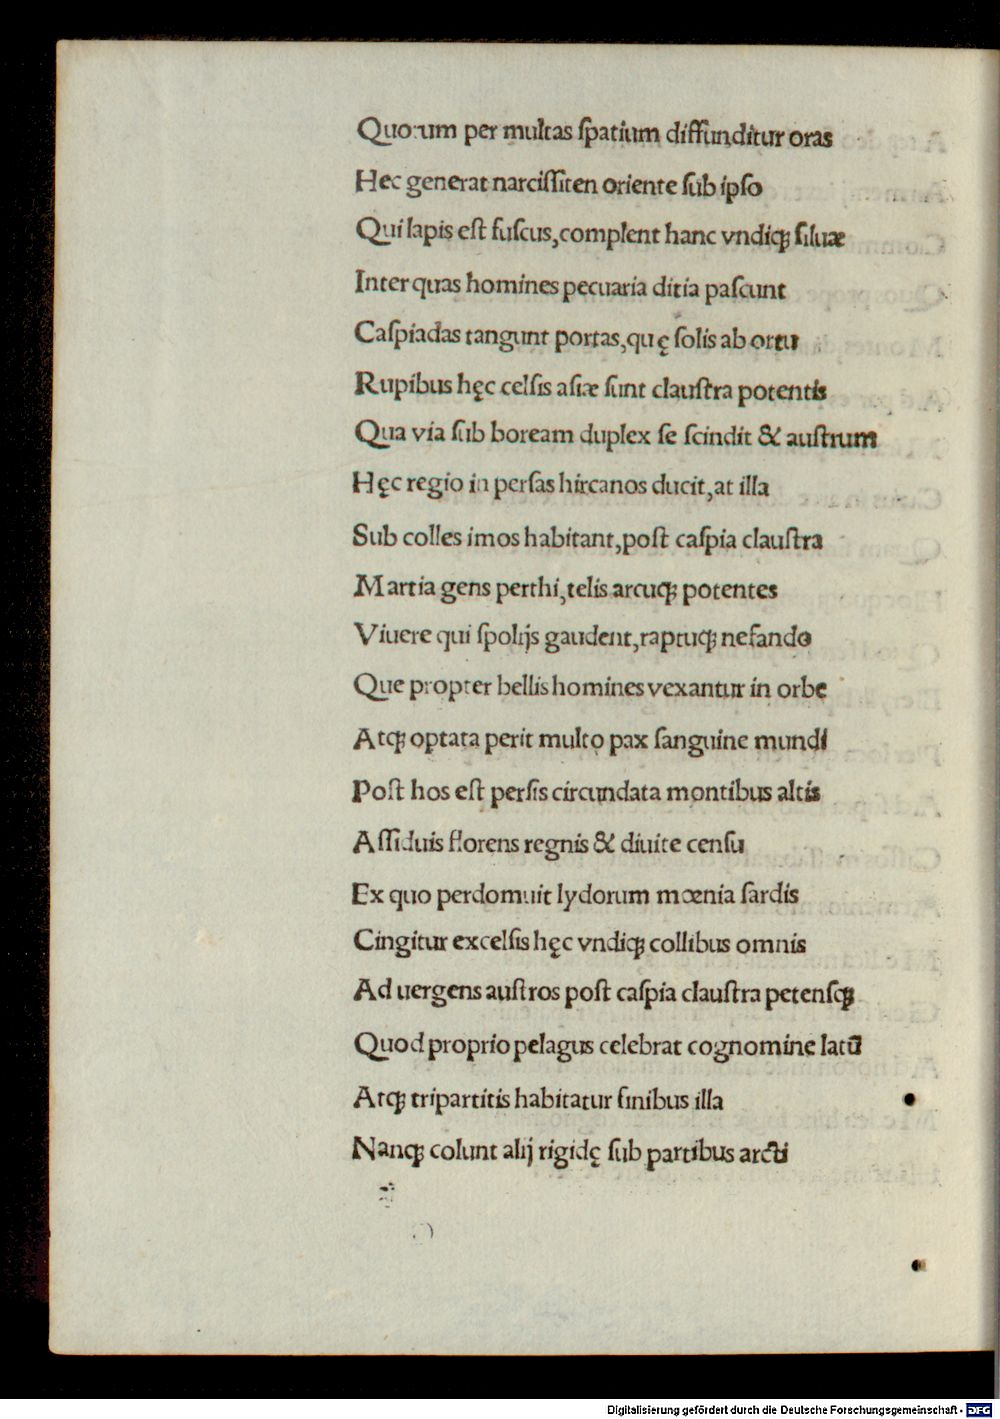 Quorum per multas ſpatium diffunditur oras
Hec generat narciſſiten oriente ſub ipſo
Qui lapis eſt fuſcus, complent hanc vndiqꝫ ſiluæ
Inter quas homines pecuaria ditia paſcunt
Caſpiadas tangunt portas, quę ſolis ab ortu
Rupibus hęc celſis aſiæ ſunt clauſtra potentis
Qua via ſub boream duplex ſe ſcindit & auſtrum
Hęc regio in perſas hircanos ducit, at illa
Sub colles imos habitant, poſt caſpia clauſtra
Martia gens perthi, telis arcuqꝫ potentes
Viuere qui ſpolijs gaudent, raptuqꝫ nefando
Que propter bellis homines vexantur in orbe
Atqꝫ optata perit multo pax ſanguine mundi
Poſt hos eſt perſis circundata montibus altis
Aſſiduis florens regnis & diuite cenſu
Ex quo perdomuit lydorum mœnia ſardis
Cingitur excelſis hęc vndiqꝫ collibus omnis
Ad uergens auſtros poſt caſpia clauſtra petenſqꝫ
Quod proprio pelagus celebrat cognomine latū
Atqꝫ tripartitis habitatur finibus illa
Nanqꝫ colunt alij rigidę ſub partibus arcti
Digitalisierung gefördert durch die Deutsche Forschungsgemeinschaft - DFG